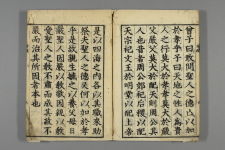 曾子曰敢問聖人之德亡以加
於孝乎子曰天地之性人爲貴
人之行莫大於孝孝莫大於嚴
父嚴父莫大於配天則周公其
人也昔者周公郊祀后稷以配
天宗祀文王於明堂以配上帝
是以四海之内各以其職來助
祭夫聖人之德又何以加於孝
乎是故親生毓之以養父母日
嚴聖人因嚴以教敬因親以教
愛聖人之教不肅而成其政不
嚴而治其所因者本也